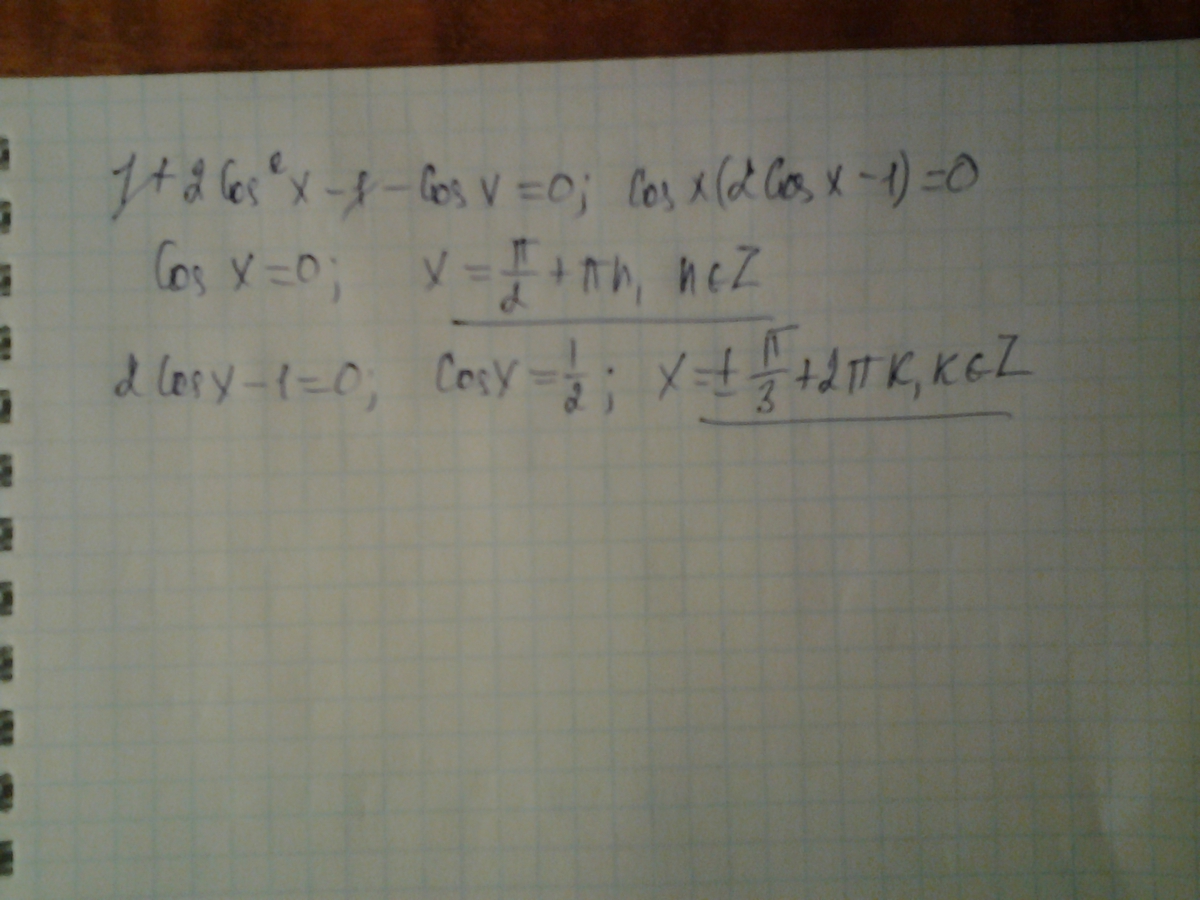 1+2Cos²x-1-Cosx=0; Cosx(2Cosx-1)=0
Cos x=0; x=π/2+πn, n∈Z
2Cosx-1=0; Cosx=1/2; x=±π/3+2πk, k∈Z